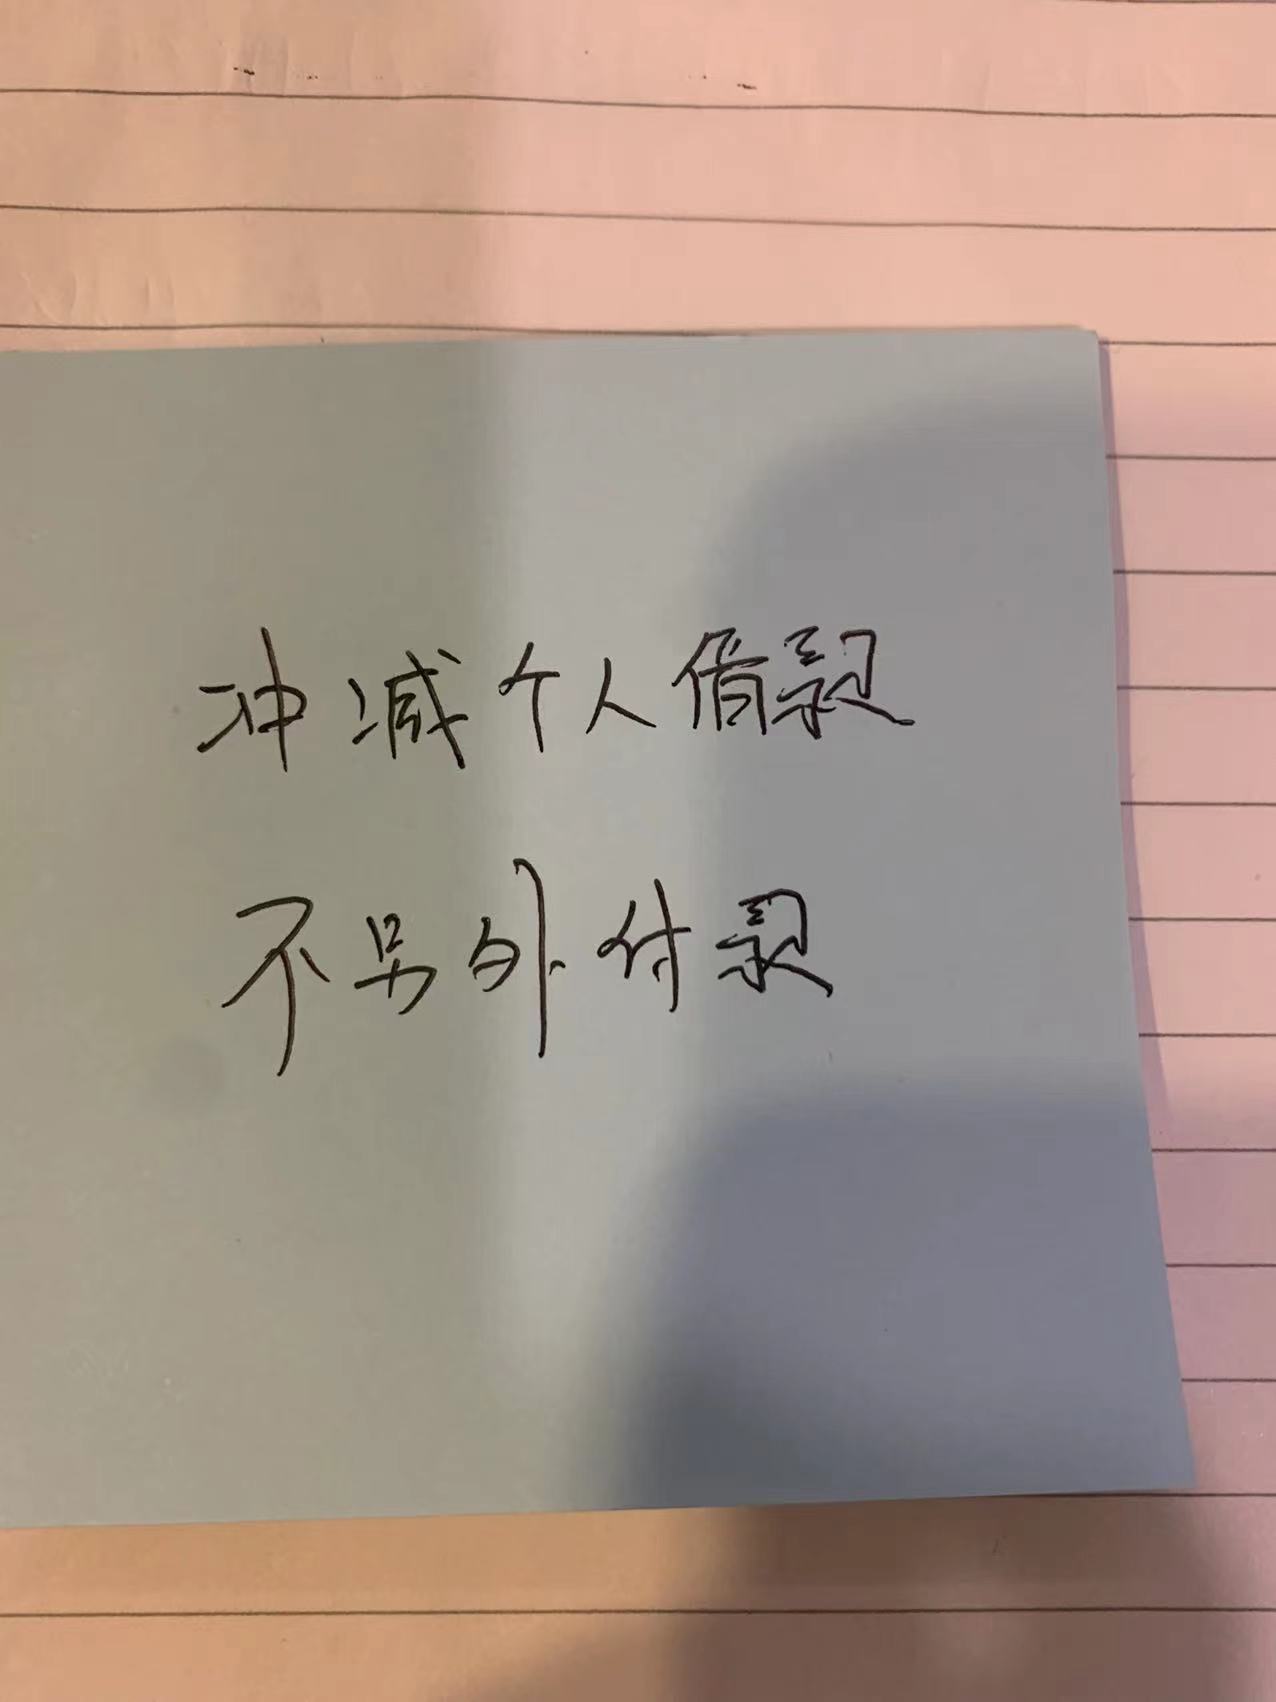 冲减个人借款
不另外付款